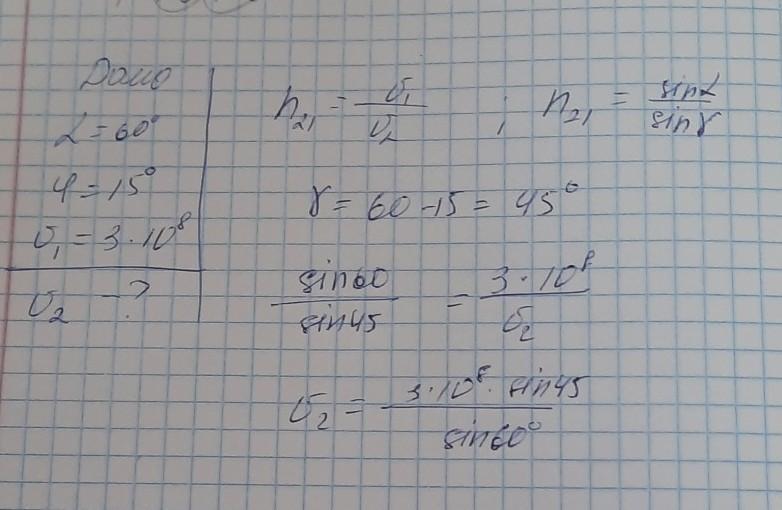 Дано
α = 60°
φ = 15°
υ₁ = 3·10⁸
υ₂ - ?
n₂₁ = υ₁/υ₂ ; n₂₁ = sinα/sinγ
γ = 60 - 15 = 45°
sin60/sin45 = 3·10⁸/υ₂
υ₂ = 3·10⁸·sin45/sin60°